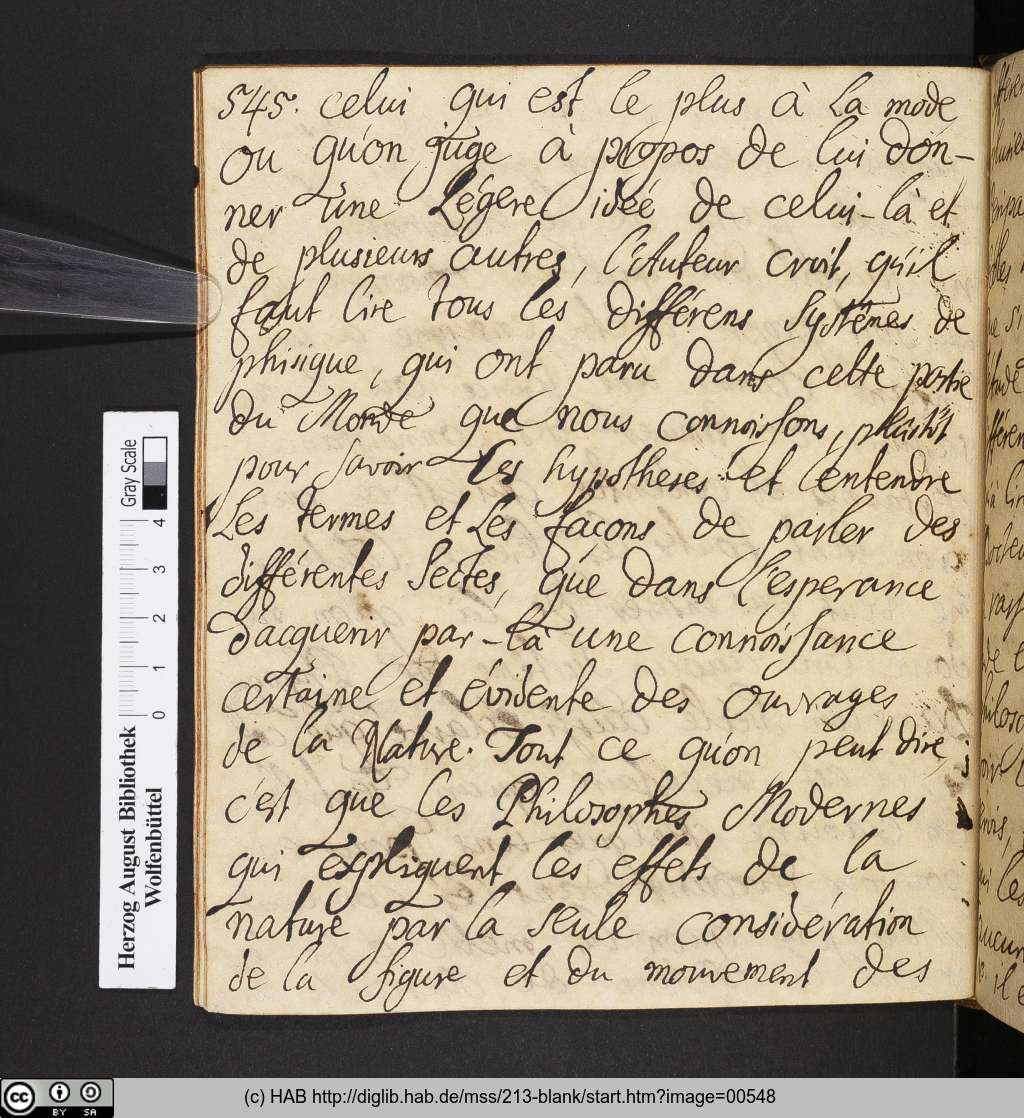 545. celui qui est le plus à la mode
ou qu'on juge à propos de lui don-
ner une Légere idée de celui-là et
de plusieurs autres, l'Auteur croit, qu'il
faut lire tous les différens systêmes de
phisique, qui ont paru dans cette partie
du Monde que nous connoissons, plustôt
pour savoir les hypotheses et entendre
Les termes et Les façons de parler des
différentes Sectes, que dans l'esperance
d'acquerir par-là une connoissance
certaine et évidente des ouvrages
de la Nature. Tout ce qu'on peut dire,
c'est que les Philosophes Modernes
qui expliquent les effets de la
nature par la seule considération
de la figure et du mouvement des
Gray Scale
4 3 2 1 0
Herzog August Bibliothek
Wolfenbüttel
cc BY SA
(c) HAB http://diglib.hab.de/mss/213-blank/start.htm?image=00548